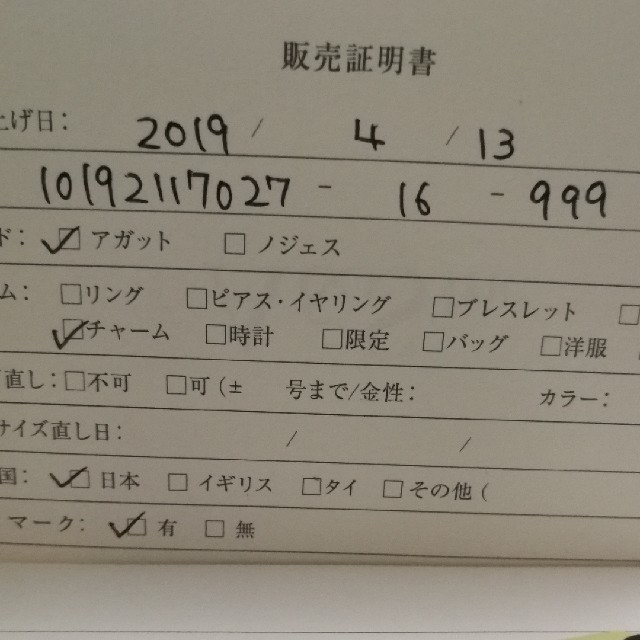 販売証明書
上げ日: 2019 / 4 / 13
10192117027 - 16 - 999
ド: ☑ アガット □ ノジェス
ム: □リング □ピアス・イヤリング □ブレスレット □
☑チャーム □時計 □限定 □バッグ □洋服
直し: □不可 □可 (± 号まで/金性: カラー:
サイズ直し日: / /
国: ☑ 日本 □ イギリス □タイ □その他 (
マーク: ☑ 有 □ 無